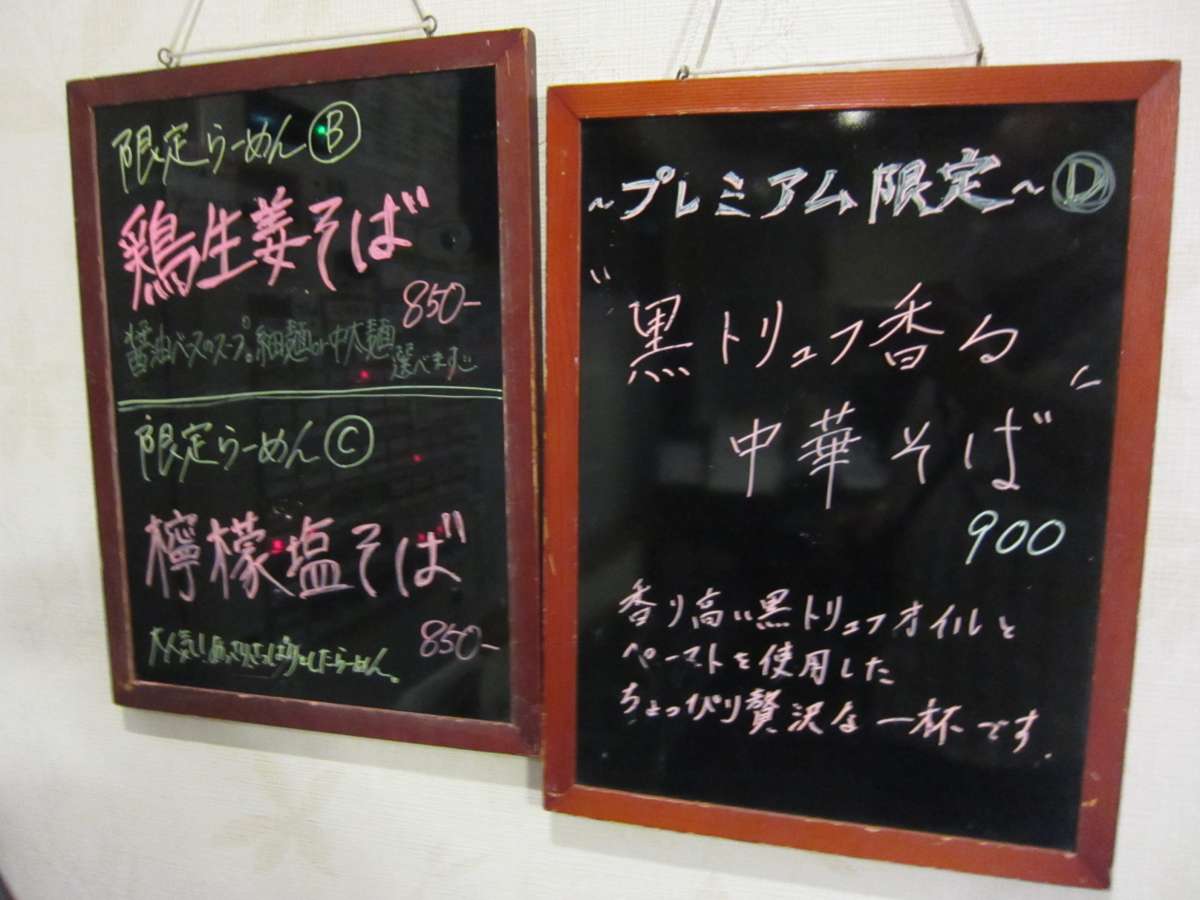 限定らーめん Ⓑ
鶏生姜そば
850-
醤油ベースのスープ。細麺or中太麺
選べます
限定らーめん Ⓒ
檸檬塩そば
850-
大人気！あっさりさっぱりとしたらーめん。
～プレミアム限定～ Ⓓ
"黒トリュフ香る
中華そば"
900
香り高い黒トリュフオイルと
ペーストを使用した
ちょっぴり贅沢な一杯です.